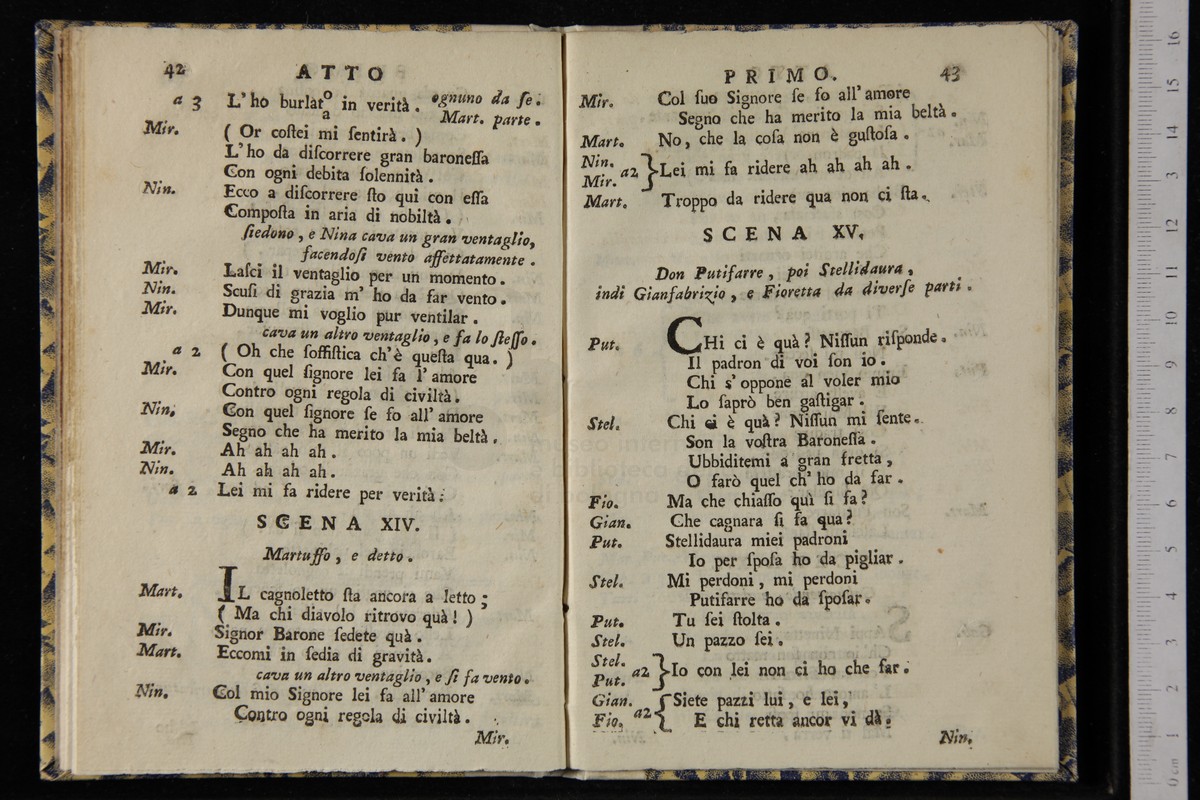 42 ATTO
a 3 L'ho burlat o/a in verità. ognuno da se.
Mart. parte.
Mir. ( Or coſtei mi ſentirà. )
L'ho da diſcorrere gran baroneſſa
Con ogni debita ſolennità.
Nin. Ecco a diſcorrere ſto qui con eſſa
Compoſta in aria di nobiltà.
ſiedono, e Nina cava un gran ventaglio,
facendoſi vento affettatamente.
Mir. Laſci il ventaglio per un momento.
Nin. Scuſi di grazia m' ho da far vento.
Mir. Dunque mi voglio pur ventilar.
cava un altro ventaglio, e fa lo ſteſſo.
a 2 ( Oh che ſoffiſtica ch'è queſta qua. )
Mir. Con quel ſignore lei fa l' amore
Contro ogni regola di civiltà.
Nin. Con quel ſignore ſe fo all' amore
Segno che ha merito la mia beltà.
Mir. Ah ah ah ah.
Nin. Ah ah ah ah.
a 2 Lei mi fa ridere per verità.
SCENA XIV.
Martuffo, e detto.
Mart. IL cagnoletto ſta ancora a letto;
( Ma chi diavolo ritrovo quà! )
Mir. Signor Barone ſedete quà.
Mart. Eccomi in ſedia di gravità.
cava un altro ventaglio, e ſi fa vento.
Nin. Col mio Signore lei fa all' amore
Contro ogni regola di civiltà.
Mir.
PRIMO. 43
Mir. Col ſuo Signore ſe fo all' amore
Segno che ha merito la mia beltà.
Mart. No, che la coſa non è guſtoſa.
Nin. Mir. a2 } Lei mi fa ridere ah ah ah ah.
Mart. Troppo da ridere qua non ci ſta.
SCENA XV.
Don Putifarre, poi Stellidaura,
indi Gianfabrizio, e Fioretta da diverſe parti.
Put. CHi ci è quà? Niſſun riſponde.
Il padron di voi ſon io.
Chi s' oppone al voler mio
Lo ſaprò ben gaſtigar.
Stel. Chi ci è quà? Niſſun mi ſente.
Son la voſtra Baroneſſa.
Ubbiditemi a gran fretta,
O farò quel ch' ho da far.
Fio. Ma che chiaſſo quì ſi fa?
Gian. Che cagnara ſi fa qua?
Put. Stellidaura miei padroni
Io per ſpoſa ho da pigliar.
Stel. Mi perdoni, mi perdoni
Putifarre ho da ſpoſar.
Put. Tu ſei ſtolta.
Stel. Un pazzo ſei.
Stel. Put. a2 } Io con lei non ci ho che far.
Gian. Fio. a2 { Siete pazzi lui, e lei,
E chi retta ancor vi dà.
Nin.